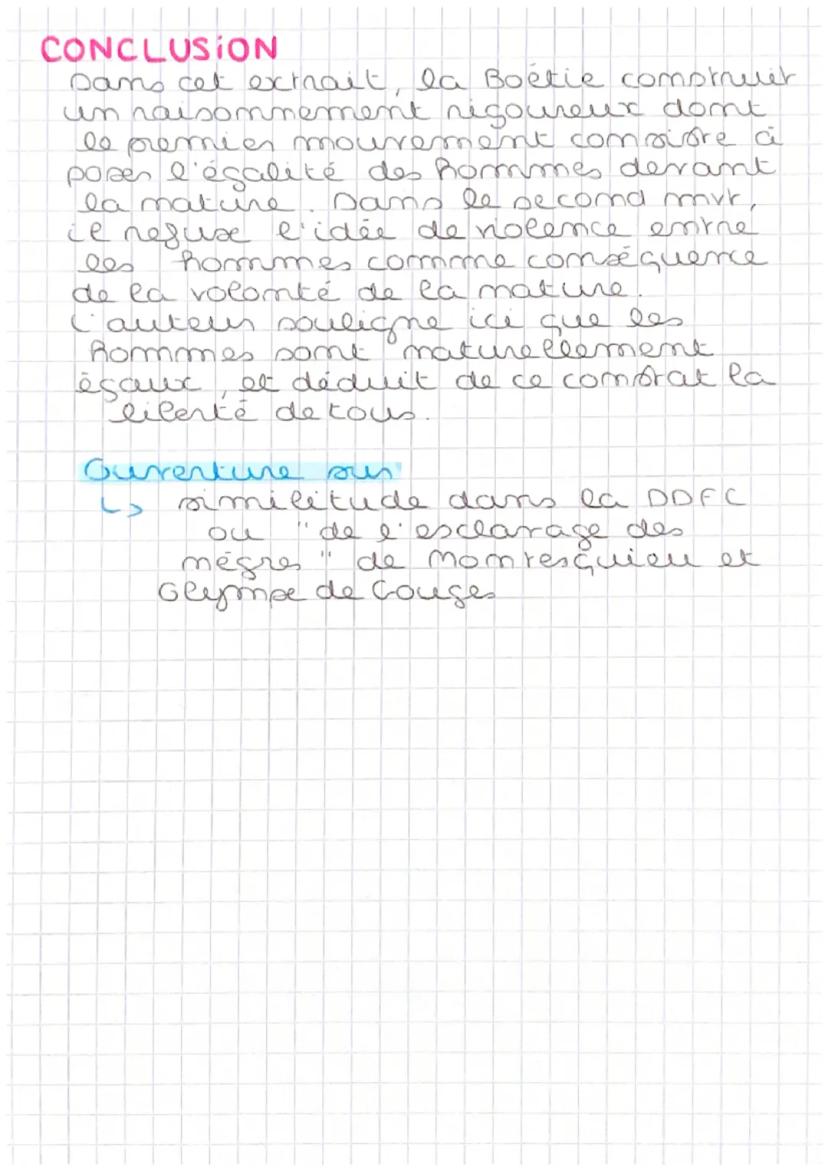 CONCLUSiON
Dans cet extrait, la Boétie construit
un raisonnement rigoureux dont
le premier mouvement consiste à
poser l'égalité des hommes devant
la nature. Dans le second mvt,
il refuse l'idée de violence entre
les hommes comme conséquence
de la volonté de la nature.
L'auteur souligne ici que les
hommes sont naturellement
égaux, et déduit de ce constat la
liberté de tous.
Ouverture sur
↳ similitude dans la DDFC
ou "de l'esclavage des
nègres" de Montesquieu et
Olympe de Gouges